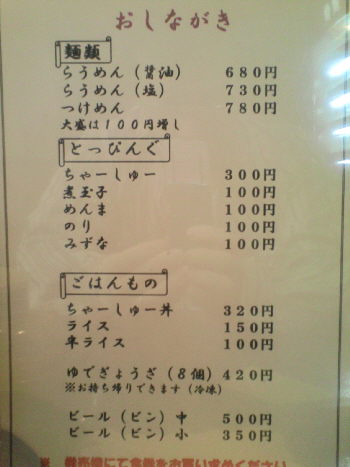 おしながき
麺類
らうめん（醤油） 680円
らうめん（塩） 730円
つけめん 780円
大盛は100円増し
とっぴんぐ
ちゃーしゅー 300円
煮玉子 100円
めんま 100円
のり 100円
みずな 100円
ごはんもの
ちゃーしゅー丼 320円
ライス 150円
半ライス 100円
ゆでぎょうざ（8個） 420円
※お持ち帰りできます（冷凍）
ビール（ビン）中 500円
ビール（ビン）小 350円
※ 券売機にて食券をお買い求めください